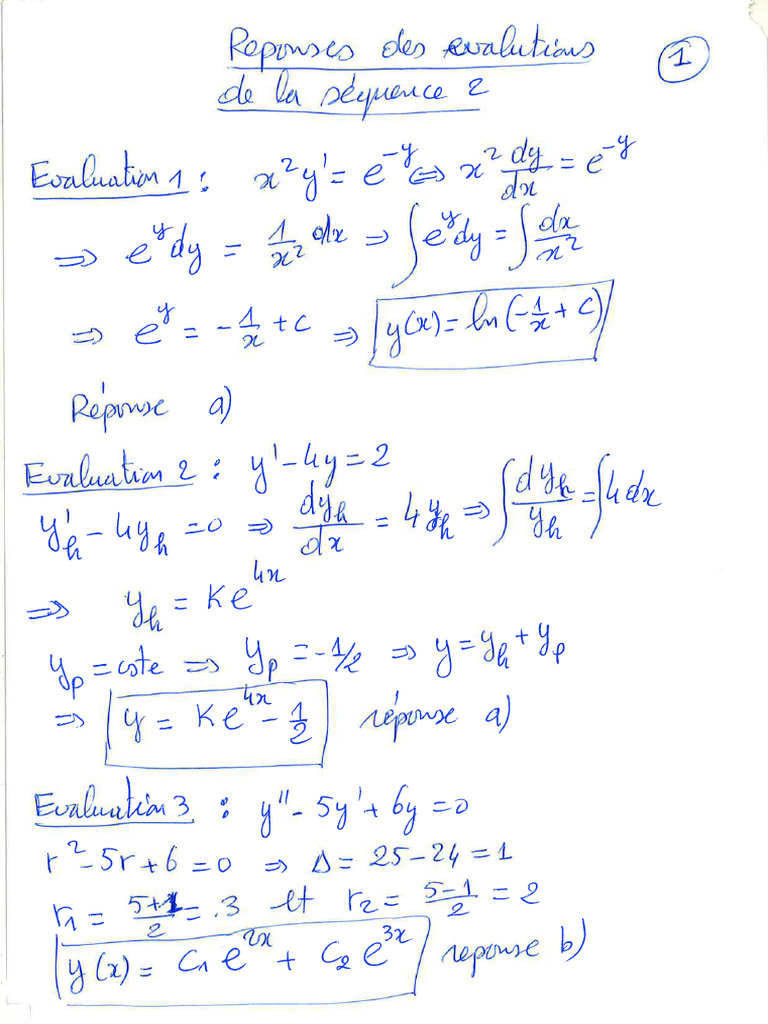 Reponses des evalutions
de la séquence 2
1
Evaluation 1 : x²y' = e^{-y} ⇔ x² dy/dx = e^{-y}
⇒ e^y dy = 1/x² dx ⇒ ∫e^y dy = ∫dx/x²
⇒ e^y = -1/x + c ⇒ y(x) = ln(-1/x + c)
Réponse a)
Evaluation 2 : y' - 4y = 2
y'_h - 4y_h = 0 ⇒ dy_h/dx = 4y_h ⇒ ∫dy_h/y_h = ∫4dx
⇒ y_h = Ke^{4x}
y_p = cste ⇒ y_p = -1/2 ⇒ y = y_h + y_p
⇒ y = Ke^{4x} - 1/2 réponse a)
Evaluation 3 : y'' - 5y' + 6y = 0
r² - 5r + 6 = 0 ⇒ Δ = 25 - 24 = 1
r₁ = 5+1/2 = 3 et r₂ = 5-1/2 = 2
y(x) = C₁e^{2x} + C₂e^{3x} reponse b)